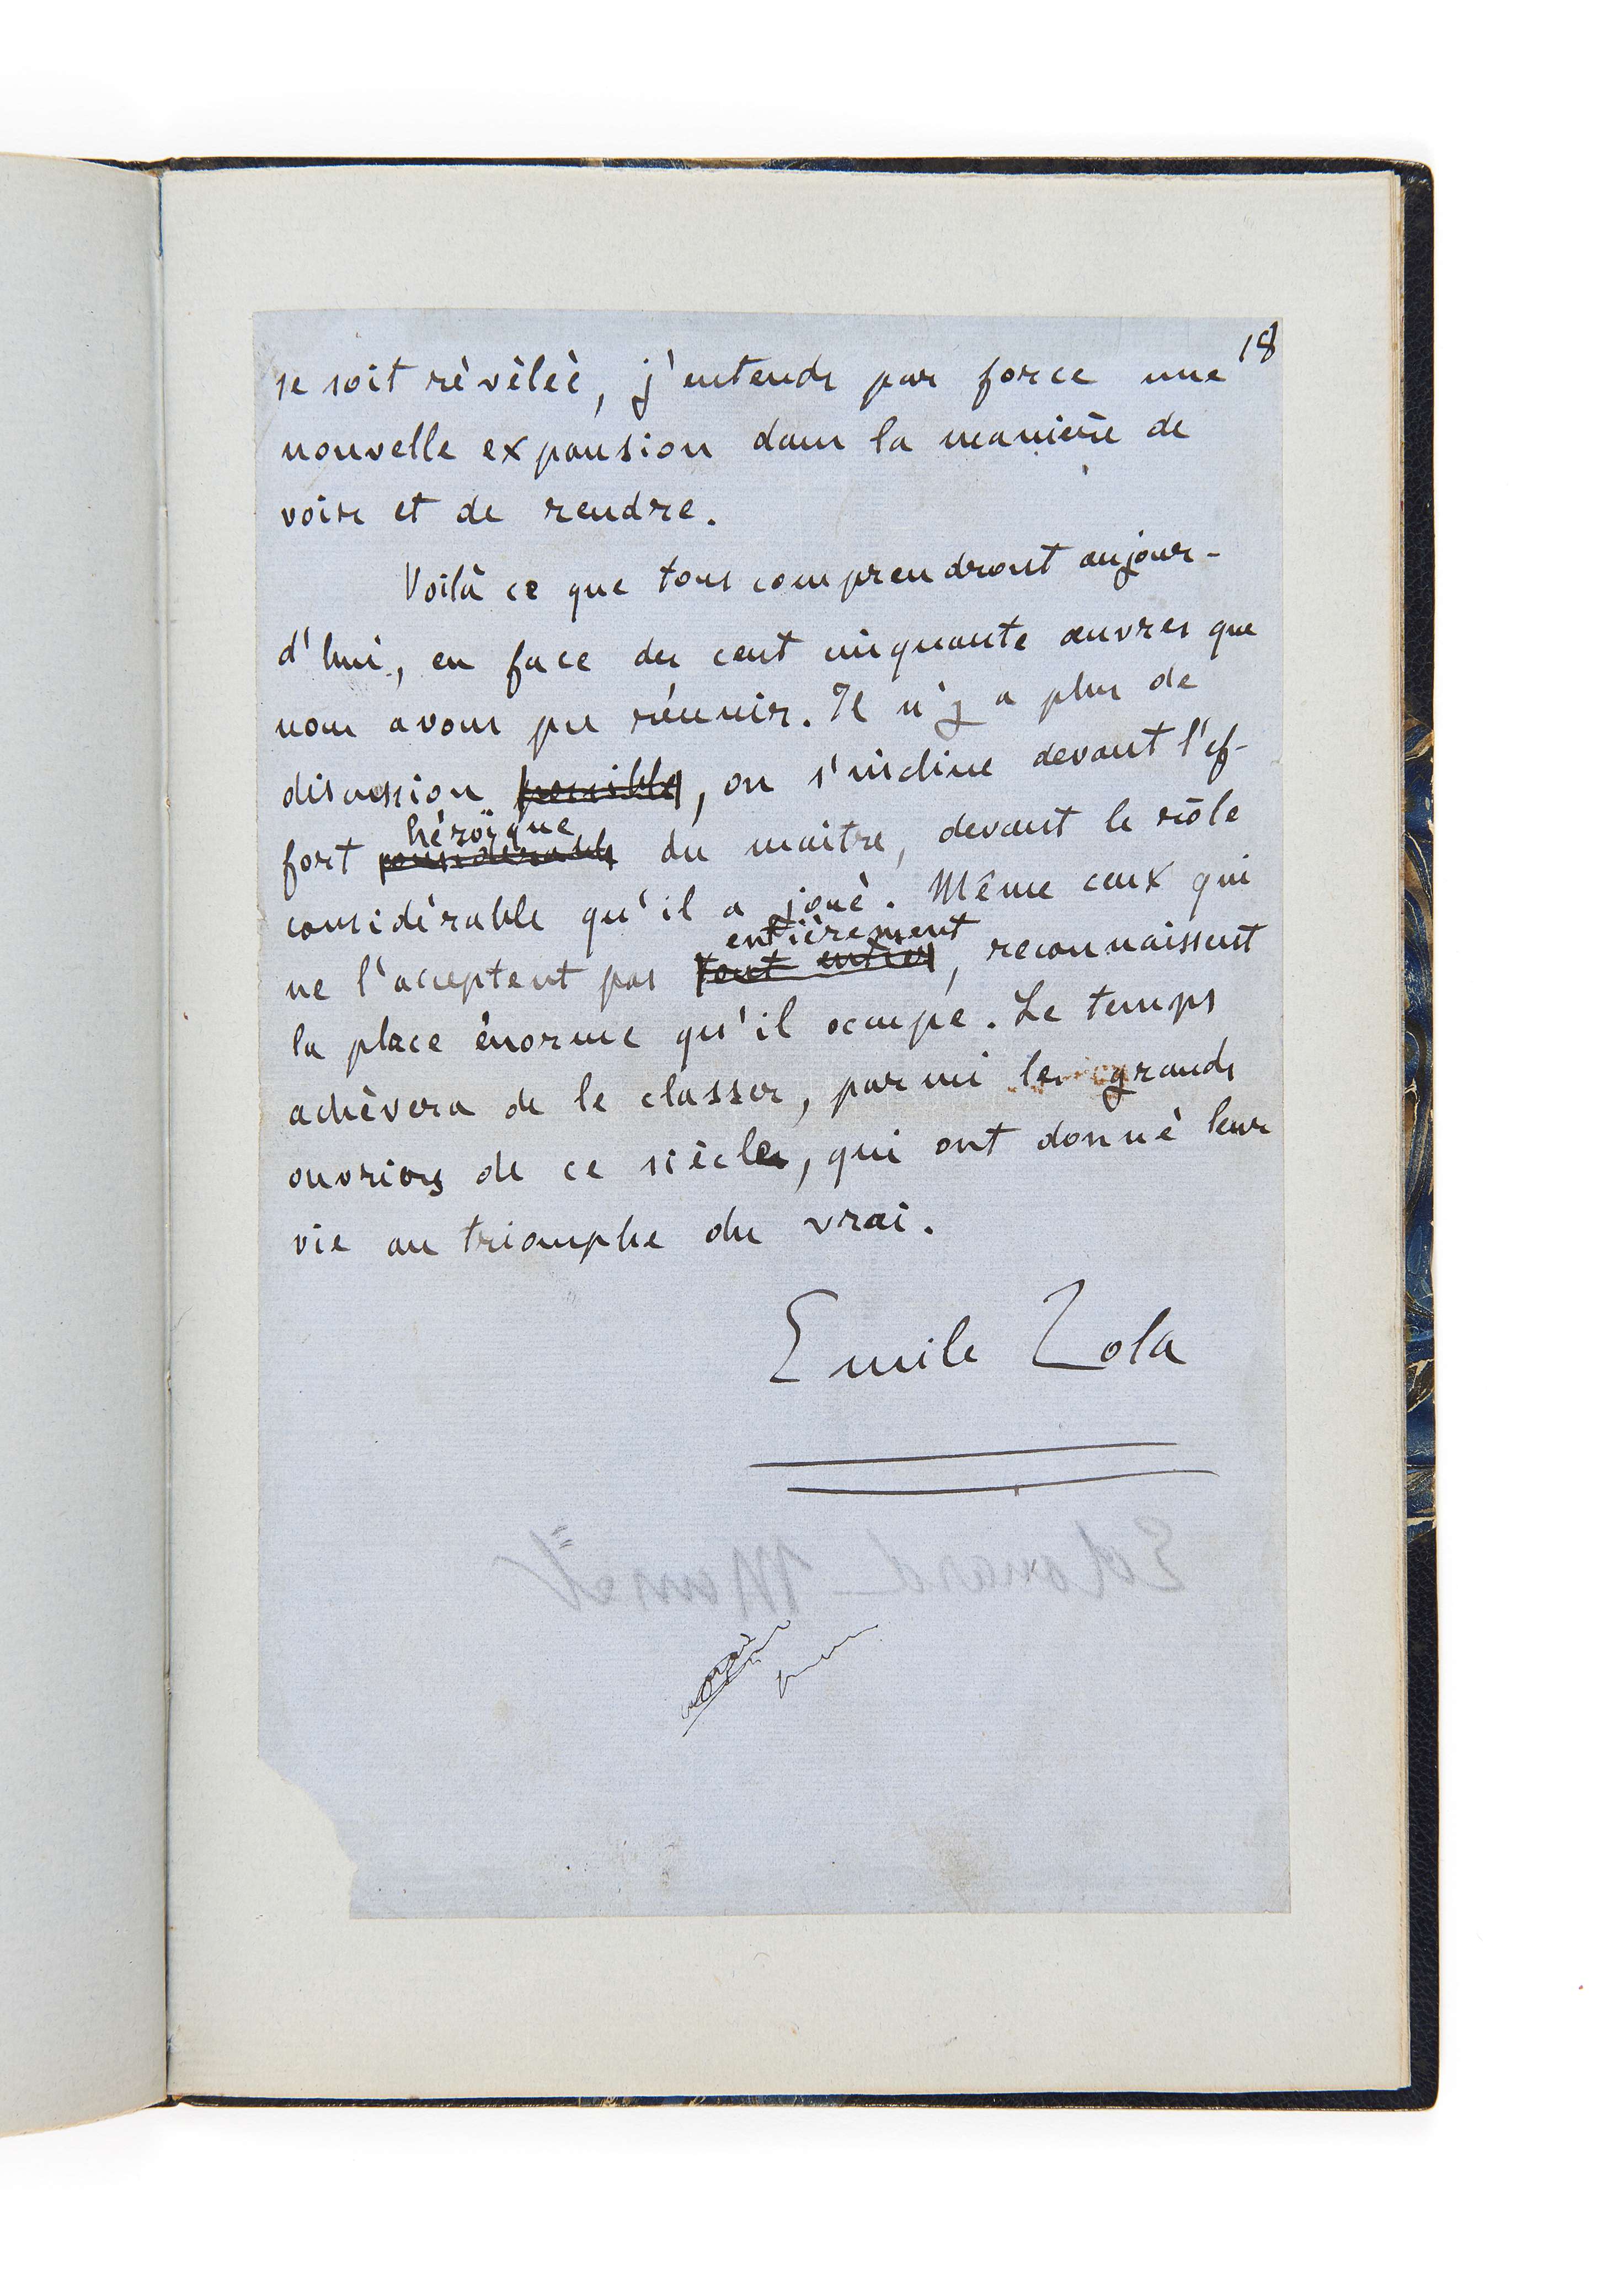 18
se soit révélée, j'entends par force une
nouvelle expansion dans la manière de
voir et de rendre.
Voilà ce que tous comprendront aujour-
d'hui, en face des cent cinquante œuvres que
nous avons pu réunir. Il n'y a plus de
discussion possible, on s'incline devant l'ef-
héroïque
fort considérable du maitre, devant le rôle
considérable qu'il a joué. Même ceux qui
entièrement
ne l'acceptent pas tout entier, reconnaissent
la place énorme qu'il occupe. Le temps
achèvera de le classer, parmi les grands
ouvriers de ce siècle, qui ont donné leur
vie au triomphe du vrai.
Emile Zola
Edouard Manet